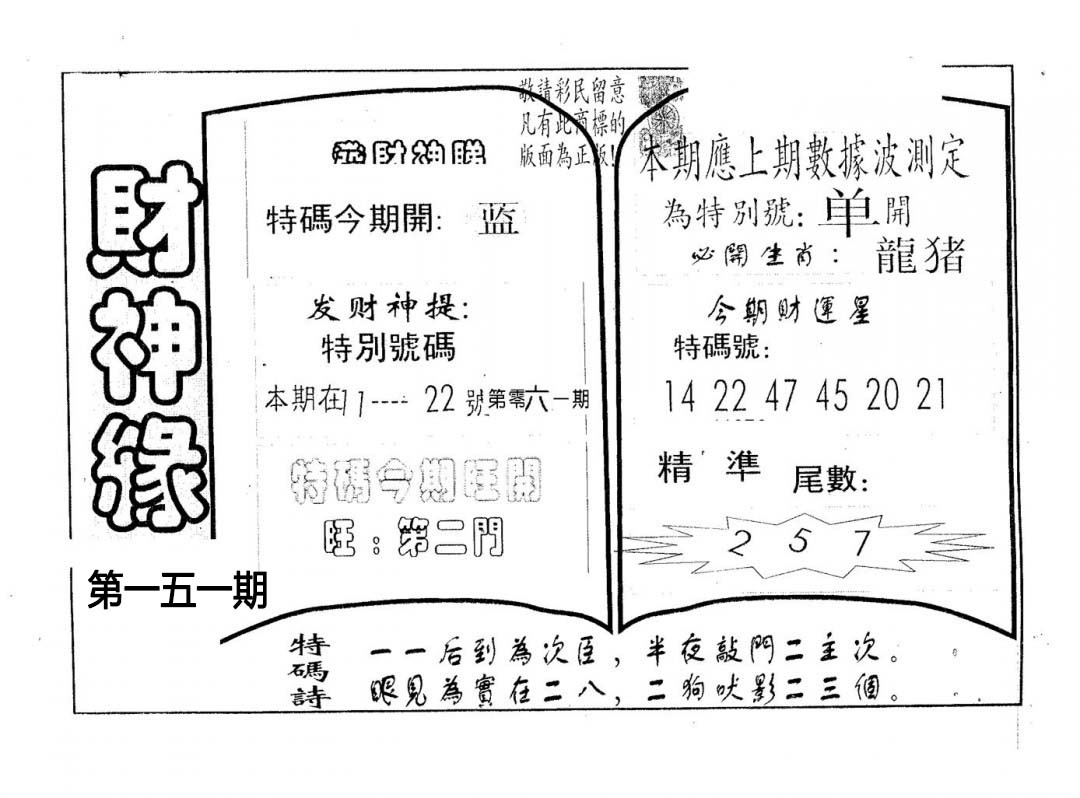 財神緣
第一五一期
敬請彩民留意
凡有此商標的
版面為正版!
特碼今期開: 蓝
发财神提:
特別號碼
本期在11----22號第零六一期
特碼今期旺開
旺:第二門
本期應上期數據波測定
為特別號:单開
必開生肖:龍猪
今期財運星
特碼號:
14 22 47 45 20 21
精準 尾數:
2 5 7
特碼詩
一一后到為次臣,半夜敲門二主次。
眼見為實在二八,二狗吠影二三個。